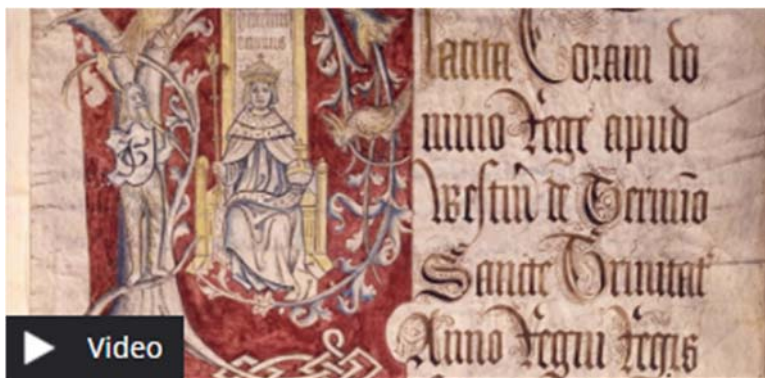 lacita Coram do
mino Rege apud
Westm̃ de Termĩo
Sancte Trinitat
Anno Regni Regis
Video